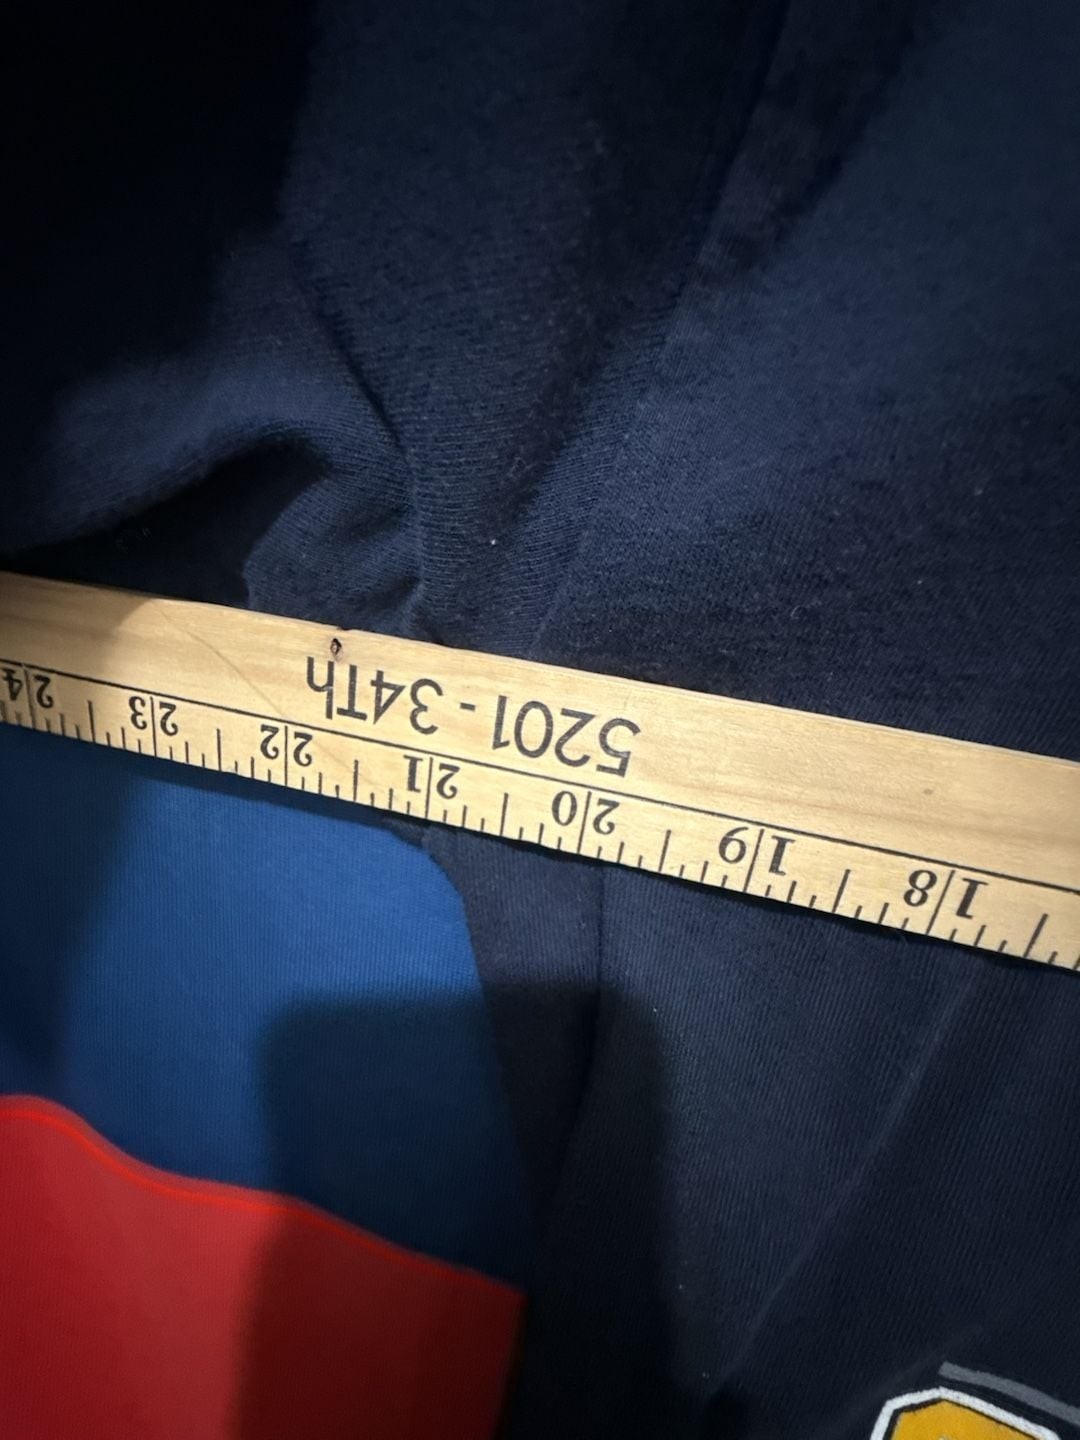 5201 - 34Th
18 19 20 21 22 23 24